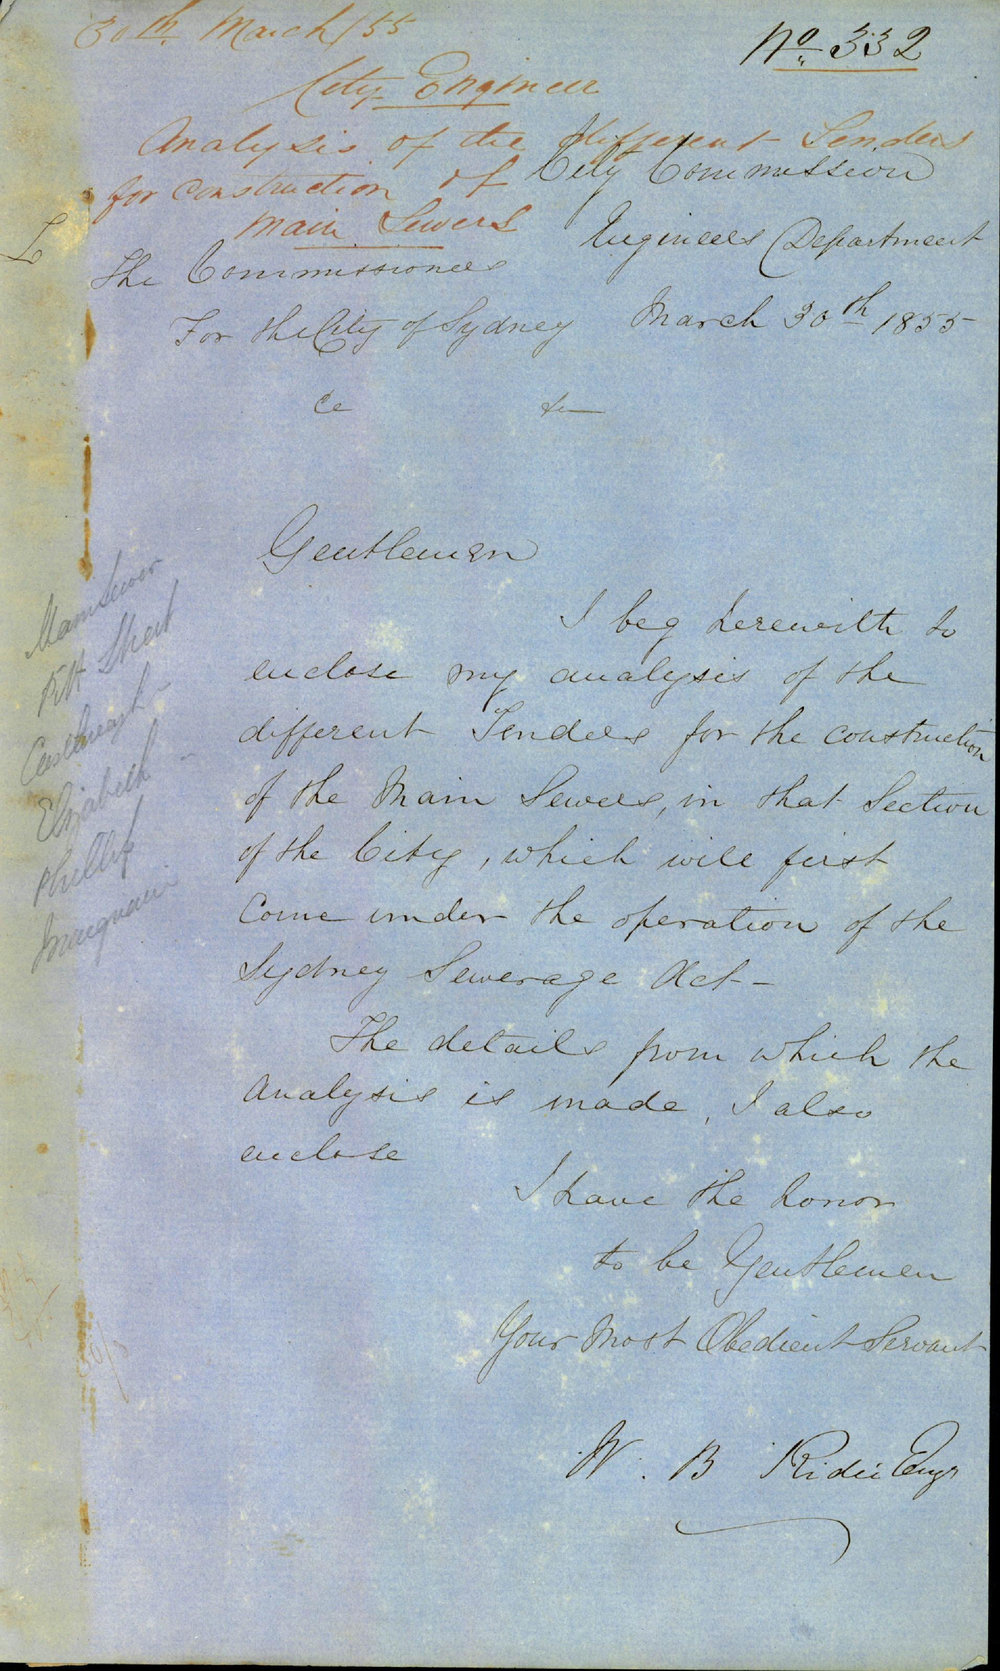 30th March/55
No 332
City Engineer
Analysis of the different Tenders
for construction of
Main Sewers
City Commission
Engineers Department
March 30th 1855
The Commissioners
For the City of Sydney
&c &c
Gentlemen
I beg herewith to
enclose my analysis of the
different Tenders for the construction
of the Main Sewers, in that Section
of the City, which will first
come under the operation of the
Sydney Sewerage Act -
The details from which the
analysis is made, I also
enclose
I have the honor
to be Gentlemen
Your Most Obedient Servant
W. B Rider Engr
Main Sewer
Pitt Street
Castlereagh -
Elizabeth -
Phillip
Macquarie
30/3